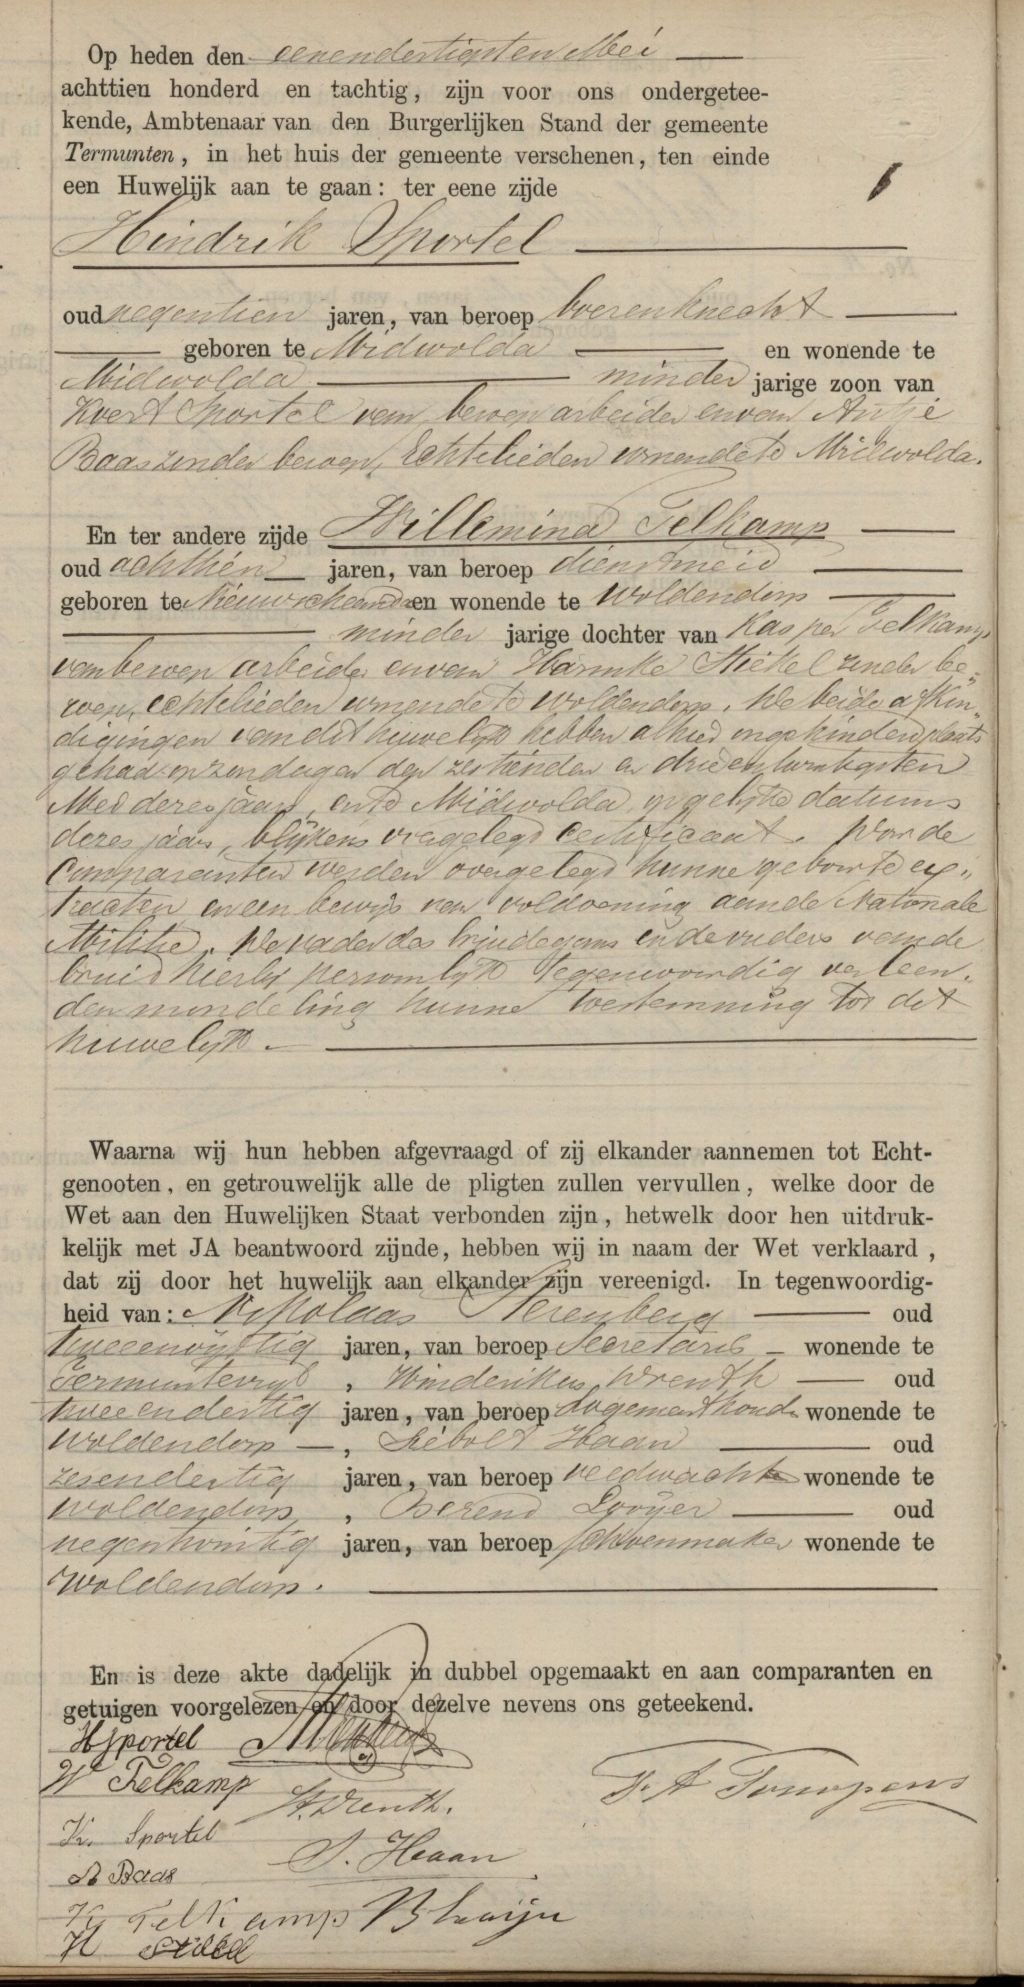 Op heden den eenendertigsten Mei
achttien honderd en tachtig, zijn voor ons ondergetee-
kende, Ambtenaar van den Burgerlijken Stand der gemeente
Termunten, in het huis der gemeente verschenen, ten einde
een Huwelijk aan te gaan: ter eene zijde
Hindrik Sportel
oud negentien jaren, van beroep boerenknecht
geboren te Midwolda en wonende te
Midwolda minder jarige zoon van
Kort Sportel van beroep arbeider en van Antje
Baas zonder beroep, Echtelieden wonende te Midwolda.
En ter andere zijde Willemina Telkamp
oud achttien jaren, van beroep dienstmeid
geboren te Nieuwscheemda en wonende te Woldendorp
minder jarige dochter van Kasper Telkamp
van beroep arbeider en van Harmke Stikel zonder be-
roep, echtelieden wonende te Woldendorp. De beide afkon-
digingen van dit huwelijk hebben alhier ongehinderd plaats
gehad op zondagen den zestienden en drieentwintigsten
Mei dezes jaars, en te Midwolda op gelijke datums
dezes jaars, blijkens overgelegd certificaat. Door de
Comparanten werden overgelegd hunne geboorte ex-
tracten en een bewijs van voldoening aan de Nationale
Militie. De vader des bruidegoms en de ouders van de
bruid hierbij persoonlijk tegenwoordig verleen-
den mondeling hunne toestemming tot dit
huwelijk.
Waarna wij hun hebben afgevraagd of zij elkander aannemen tot Echt-
genooten, en getrouwelijk alle de pligten zullen vervullen, welke door de
Wet aan den Huwelijken Staat verbonden zijn, hetwelk door hen uitdruk-
kelijk met JA beantwoord zijnde, hebben wij in naam der Wet verklaard,
dat zij door het huwelijk aan elkander zijn vereenigd. In tegenwoordig-
heid van: Nikolaas Sterenberg oud
tweeenvijftig jaren, van beroep Secretaris wonende te
Termunterzijl, Hinderikus Drenth oud
tweeendertig jaren, van beroep Logementhouder wonende te
Woldendorp, Siebolt Haan oud
zesendertig jaren, van beroep veldwachter wonende te
Woldendorp, Berend Looijer oud
negentwintig jaren, van beroep schoenmaker wonende te
Woldendorp.
En is deze akte dadelijk in dubbel opgemaakt en aan comparanten en
getuigen voorgelezen en door dezelve nevens ons geteekend.
H Sportel
W Telkamp
H. Drenth.
K. Sportel
S. Haan
A Baas
K Telkamp
H Stikel